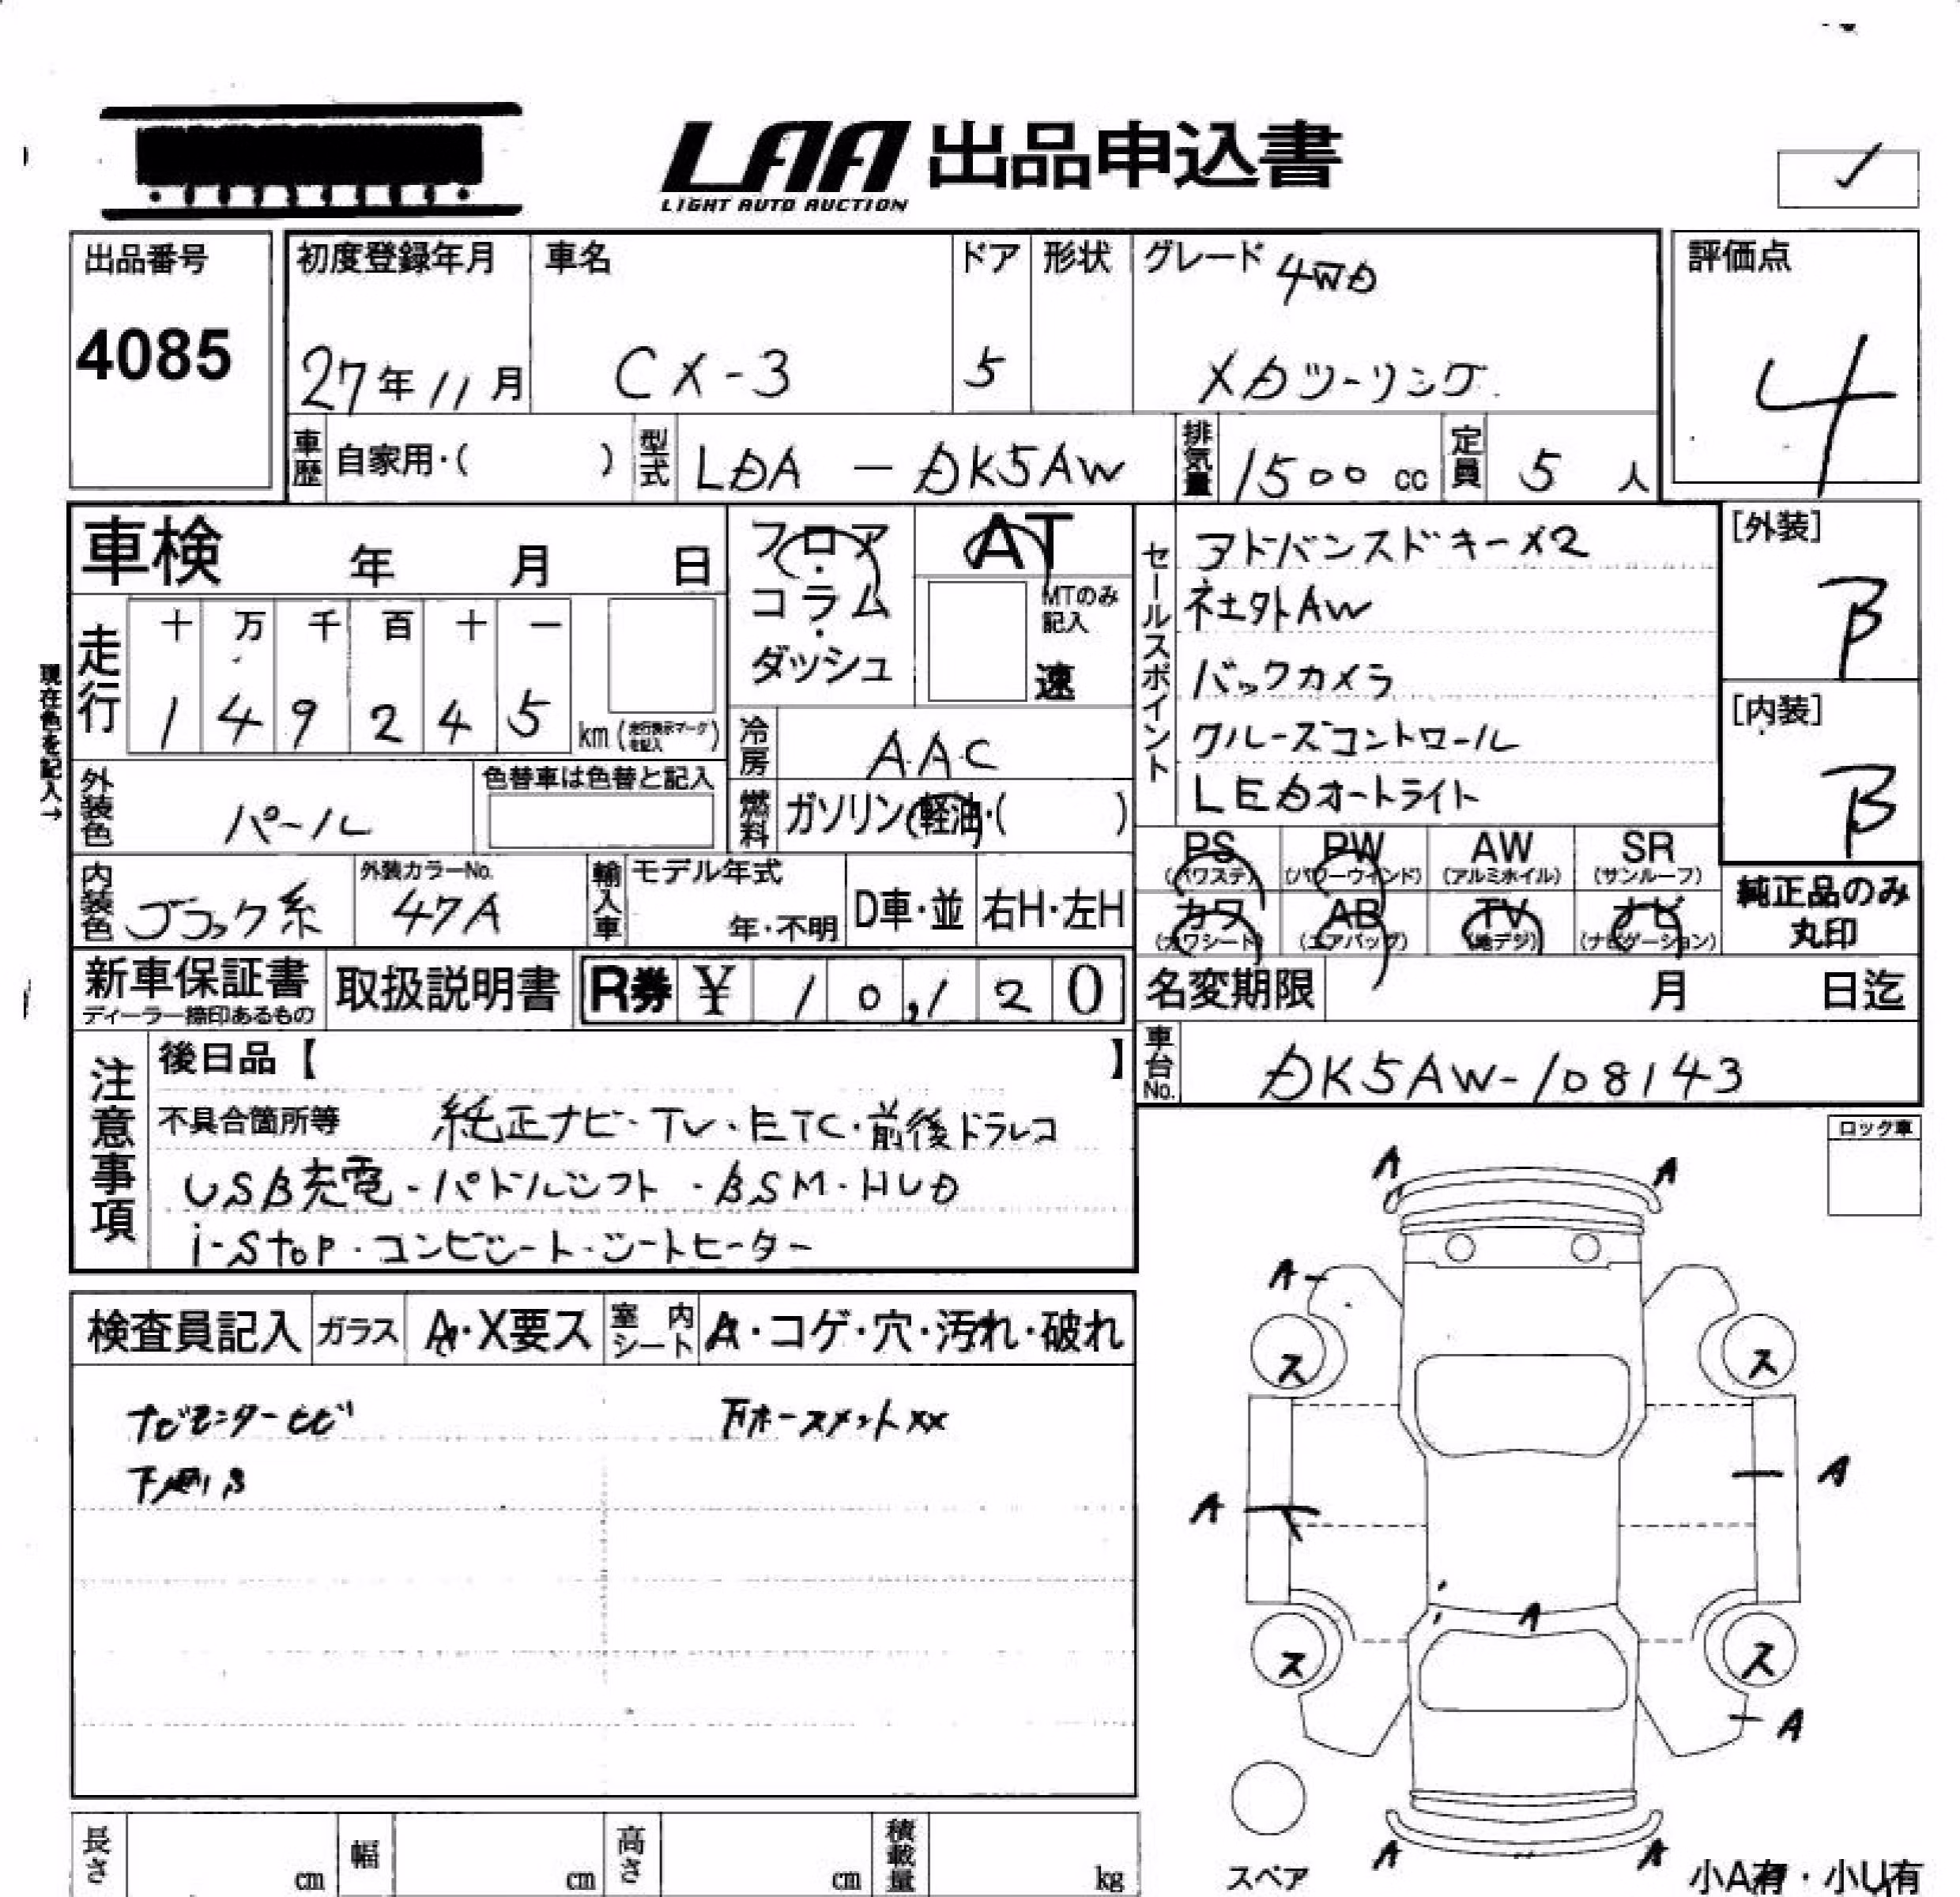 LAA 出品申込書
LIGHT AUTO AUCTION
出品番号
4085
初度登録年月
27年11月
車名
CX-3
ドア
5
形状
グレード 4WD
XDツーリング
評価点
4
車歴 自家用・( )
型式 LDA - DK5AW
排気量 1500 cc
定員 5 人
車検 年 月 日
走行
十 万 千 百 十 一
1 4 9 2 4 5
km(走行表示マークを記入)
現在色を記入→
フロア・コラム・ダッシュ
AT
MTのみ記入
速
冷房 AAC
燃料 ガソリン・軽油・( )
外装色 パール
色替車は色替と記入
内装色 ブラック系
外装カラーNo.
47A
輸入車 モデル年式
年・不明
D車・並
右H・左H
セールスポイント
アドバンスドキー×2
AW
バックカメラ
クルーズコントロール
LEDオートライト
[外装]
B
[内装]
B
PS (パワステ)
PW (パワーウインド)
AW (アルミホイル)
SR (サンルーフ)
カワ (カワシート)
AB (エアバッグ)
TV (地デジ)
ナビ (ナビゲーション)
純正品のみ丸印
新車保証書
ディーラー捺印あるもの
取扱説明書
R券 ¥ 10,120
名変期限 月 日迄
車台No. DK5AW-108143
注意事項
後日品【 】
不具合箇所等 純正ナビ・TV・ETC・前後ドラレコ
USB充電・パドルシフト・BSM・HUD
i-stop・コンビシート・シートヒーター
ロック車
検査員記入
ガラス A・X要ス
室内シート A・コゲ・穴・汚れ・破れ
ナビモニターヒビ
下廻りS
××
A A
A
ス ス
A
A
A
ス ス
A
A A
スペア
小A有・小U有
長さ cm
幅 cm
高さ cm
積載量 kg